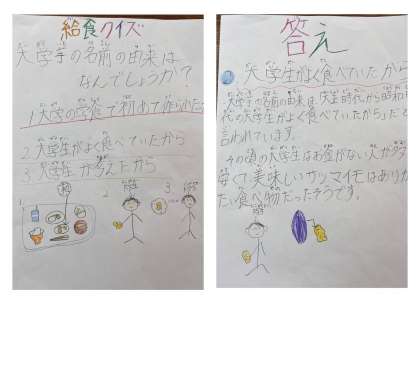 給食クイズ
大学芋の名前の由来は
なんでしょうか?
1 大学の学食で初めて作られた
2 大学生がよく食べていたから
3 大学生が考えたから
1
2
3
答え
2 大学生がよく食べていたから
大学芋の名前の由来は、大正時代から昭和
代の大学生がよく食べていたから」だと
言われています。
その頃の大学生はお金がない人が多
安くて美味しいサツマイモはありが
たい食べ物だったそうです。